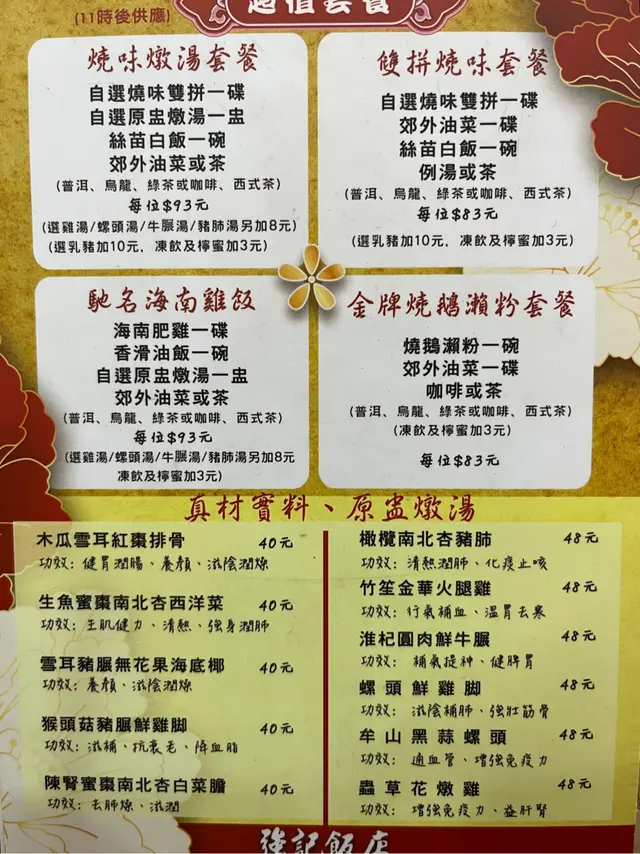 超值套餐
(11時後供應)
燒味燉湯套餐
自選燒味雙拼一碟
自選原盅燉湯一盅
絲苗白飯一碗
郊外油菜或茶
(普洱、烏龍、綠茶或咖啡、西式茶)
每位$93元
(選雞湯/螺頭湯/牛𦟌湯/豬肺湯另加8元)
(選乳豬加10元, 凍飲及檸蜜加3元)
雙拼燒味套餐
自選燒味雙拼一碟
郊外油菜一碟
絲苗白飯一碗
例湯或茶
(普洱、烏龍、綠茶或咖啡、西式茶)
每位$83元
(選乳豬加10元, 凍飲及檸蜜加3元)
馳名海南雞飯
海南肥雞一碟
香滑油飯一碗
自選原盅燉湯一盅
郊外油菜或茶
(普洱、烏龍、綠茶或咖啡、西式茶)
每位$93元
(選雞湯/螺頭湯/牛𦟌湯/豬肺湯另加8元
凍飲及檸蜜加3元)
金牌燒鵝瀨粉套餐
燒鵝瀨粉一碗
郊外油菜一碟
咖啡或茶
(普洱、烏龍、綠茶或咖啡、西式茶)
(凍飲及檸蜜加3元)
每位$83元
真材實料、原盅燉湯
木瓜雪耳紅棗排骨 40元
功效: 健胃潤腸、養顏、滋陰潤燥
生魚蜜棗南北杏西洋菜 40元
功效: 生肌健力、清熱、強身潤肺
雪耳豬𦟌無花果海底椰 40元
功效: 養顏、滋陰潤燥
猴頭菇豬𦟌鮮雞腳 40元
功效: 滋補、抗衰老、降血脂
陳腎蜜棗南北杏白菜膽 40元
功效: 去肺燥、滋潤
橄欖南北杏豬肺 48元
功效: 清熱潤肺、化痰止咳
竹笙金華火腿雞 48元
功效: 行氣補血、溫胃去寒
淮杞圓肉鮮牛𦟌 48元
功效: 補氣提神、健脾胃
螺頭鮮雞腳 48元
功效: 滋陰補肺、強壯筋骨
牟山黑蒜螺頭 48元
功效: 通血管、增強免疫力
蟲草花燉雞 48元
功效: 增強免疫力、益肝腎
強記飯店